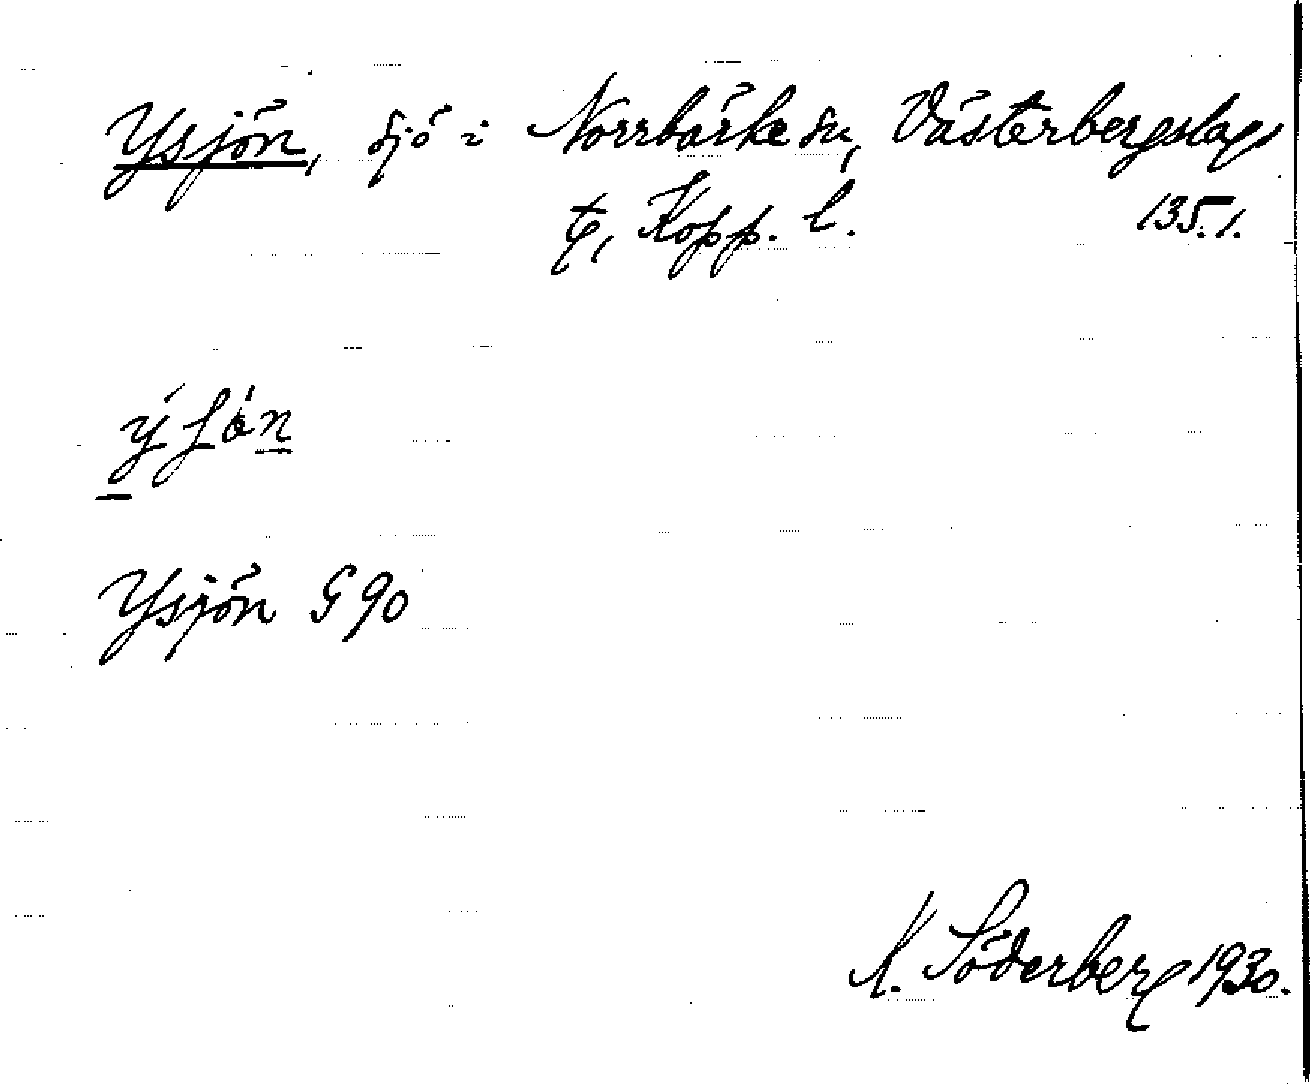 Ysjön, sjö i Norrbärke sn, Västerbergslags
tg, Kopp. l. 135.1.
Ysjön G 90
K. Söderberg 1930.